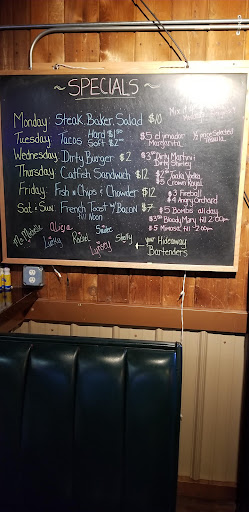 ~ SPECIALS ~
Monday: Steak, Baker, Salad $10
Tuesday: Tacos Hard $1.50 Soft $2.00 $5 el Jimador Margarita ½ price Selected Tequila
Wednesday: Dirty Burger $2 $3 Dirty Martini Dirty Shirley
Thursday: Catfish Sandwich $12 $2 Taaka Vodka $5 Crown Royal
Friday: Fish n Chips & Chowder $12 $3 Fireball $4 Angry Orchard
Sat & Sun: French Toast w/ Bacon $7 till Noon $5 Bombs all day
$3.50 Bloody Mary till 2:00pm
$5 Mimosa till 2:00pm
Michelle Alicia Lucy Rachel Susie Lyndsey Shelly ← your Hideaway Bartenders